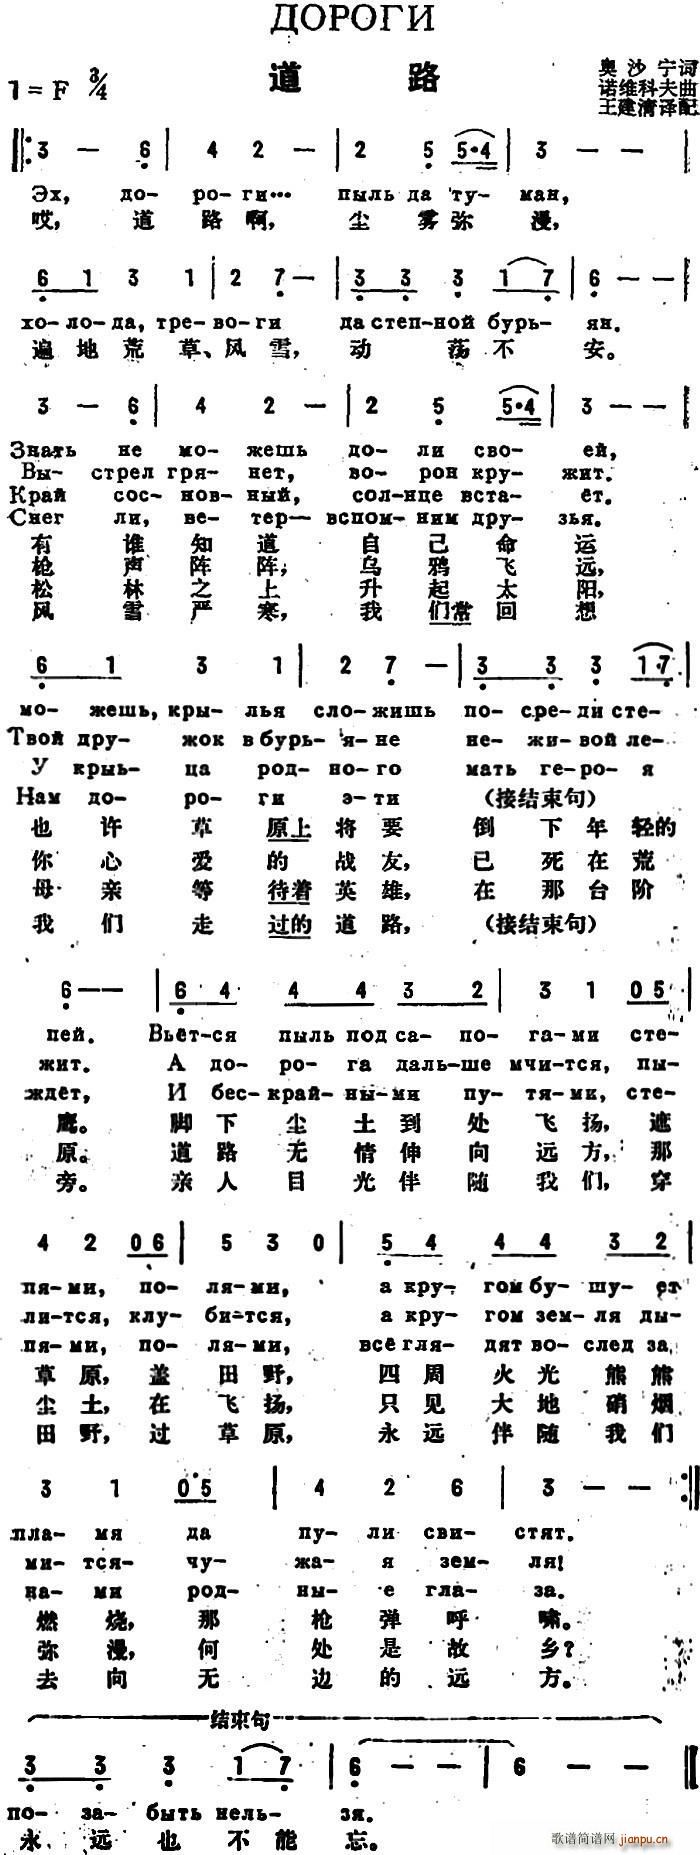 ДОРОГИ
道 路
1=F 3/4
奥沙宁词
诺维科夫曲
王建清译配
3 — 6 | 4 2 — | 2 5 5·4 | 3 — —
Эх, до- ро- ги··· пыль да ту- ман,
哎, 道 路 啊, 尘 雾 弥 漫,
6 1 3 1 | 2 7 — | 3 3 3 1 7 | 6 — —
хо- ло- да, тре- во- ги да степ- ной бурь- ян.
遍 地 荒 草、风 雪, 动 荡 不 安。
3 — 6 | 4 2 — | 2 5 5·4 | 3 — —
Знать не мо- жешь до- ли сво- ей,
Вы- стрел гря- нет, во- рон кру- жит.
Край сос- нов- ный, сол- нце вста- ёт.
Снег ли, ве- тер— вспом- ним дру- зья.
有 谁 知 道 自 己 命 运
枪 声 阵 阵, 乌 鸦 飞 远,
松 林 之 上 升 起 太 阳,
风 雪 严 寒, 我 们常 回 想
6 1 3 1 | 2 7 — | 3 3 3 1·7
мо- жешь, кры- лья сло- жишь по- сре- ди сте-
Твой дру- жок в бурь- я- не не- жи- вой ле-
У крыь- ца род- но- го мать ге- ро- я
Нам до- ро- ги э- ти (接结束句)
也 许 草 原上 将 要 倒 下 年 轻的
你 心 爱 的 战 友, 已 死 在 荒
母 亲 等 待着 英 雄, 在 那 台 阶
我 们 走 过的 道 路, (接结束句)
6 — — | 6 4 4 4 3 2 | 3 1 0 5
пей. Вьёт- ся пыль под са- по- га- ми сте-
жит. А до- ро- га даль- ше мчит- ся, пы-
ждёт, И бес- край- ны- ми пу- тя- ми, сте-
鹰。 脚 下 尘 土 到 处 飞 扬, 遮
原。 道 路 无 情 伸 向 远 方, 那
旁。 亲 人 目 光 伴 随 我 们, 穿
4 2 0 6 | 5 3 0 | 5 4 4 4 3 2
пя- ми, по- ля- ми, а кру- гом бу- шу- ет
лит- ся, клу- бит- ся, а кру- гом зем- ля ды-
пя- ми, по- ля- ми, всё гля- дят во- след за,
草 原, 盖 田 野, 四 周 火 光 熊 熊
尘 土, 在 飞 扬, 只 见 大 地 硝 烟
田 野, 过 草 原, 永 远 伴 随 我 们
3 1 0 5 | 4 2 6 | 3 — —
пла- мя да пу- ли сви- стят.
мит- ся- чу- жа- я зем- ля!
на- ми род- ны- е гла- за.
燃 烧, 那 枪 弹 呼 啸。
弥 漫, 何 处 是 故 乡?
去 向 无 边 的 远 方。
结束句
3 3 3 1 7 | 6 — — | 6 — —
по- за- быть нель- зя.
永 远 也 不 能 忘。
歌谱简谱网
jianpu.cn